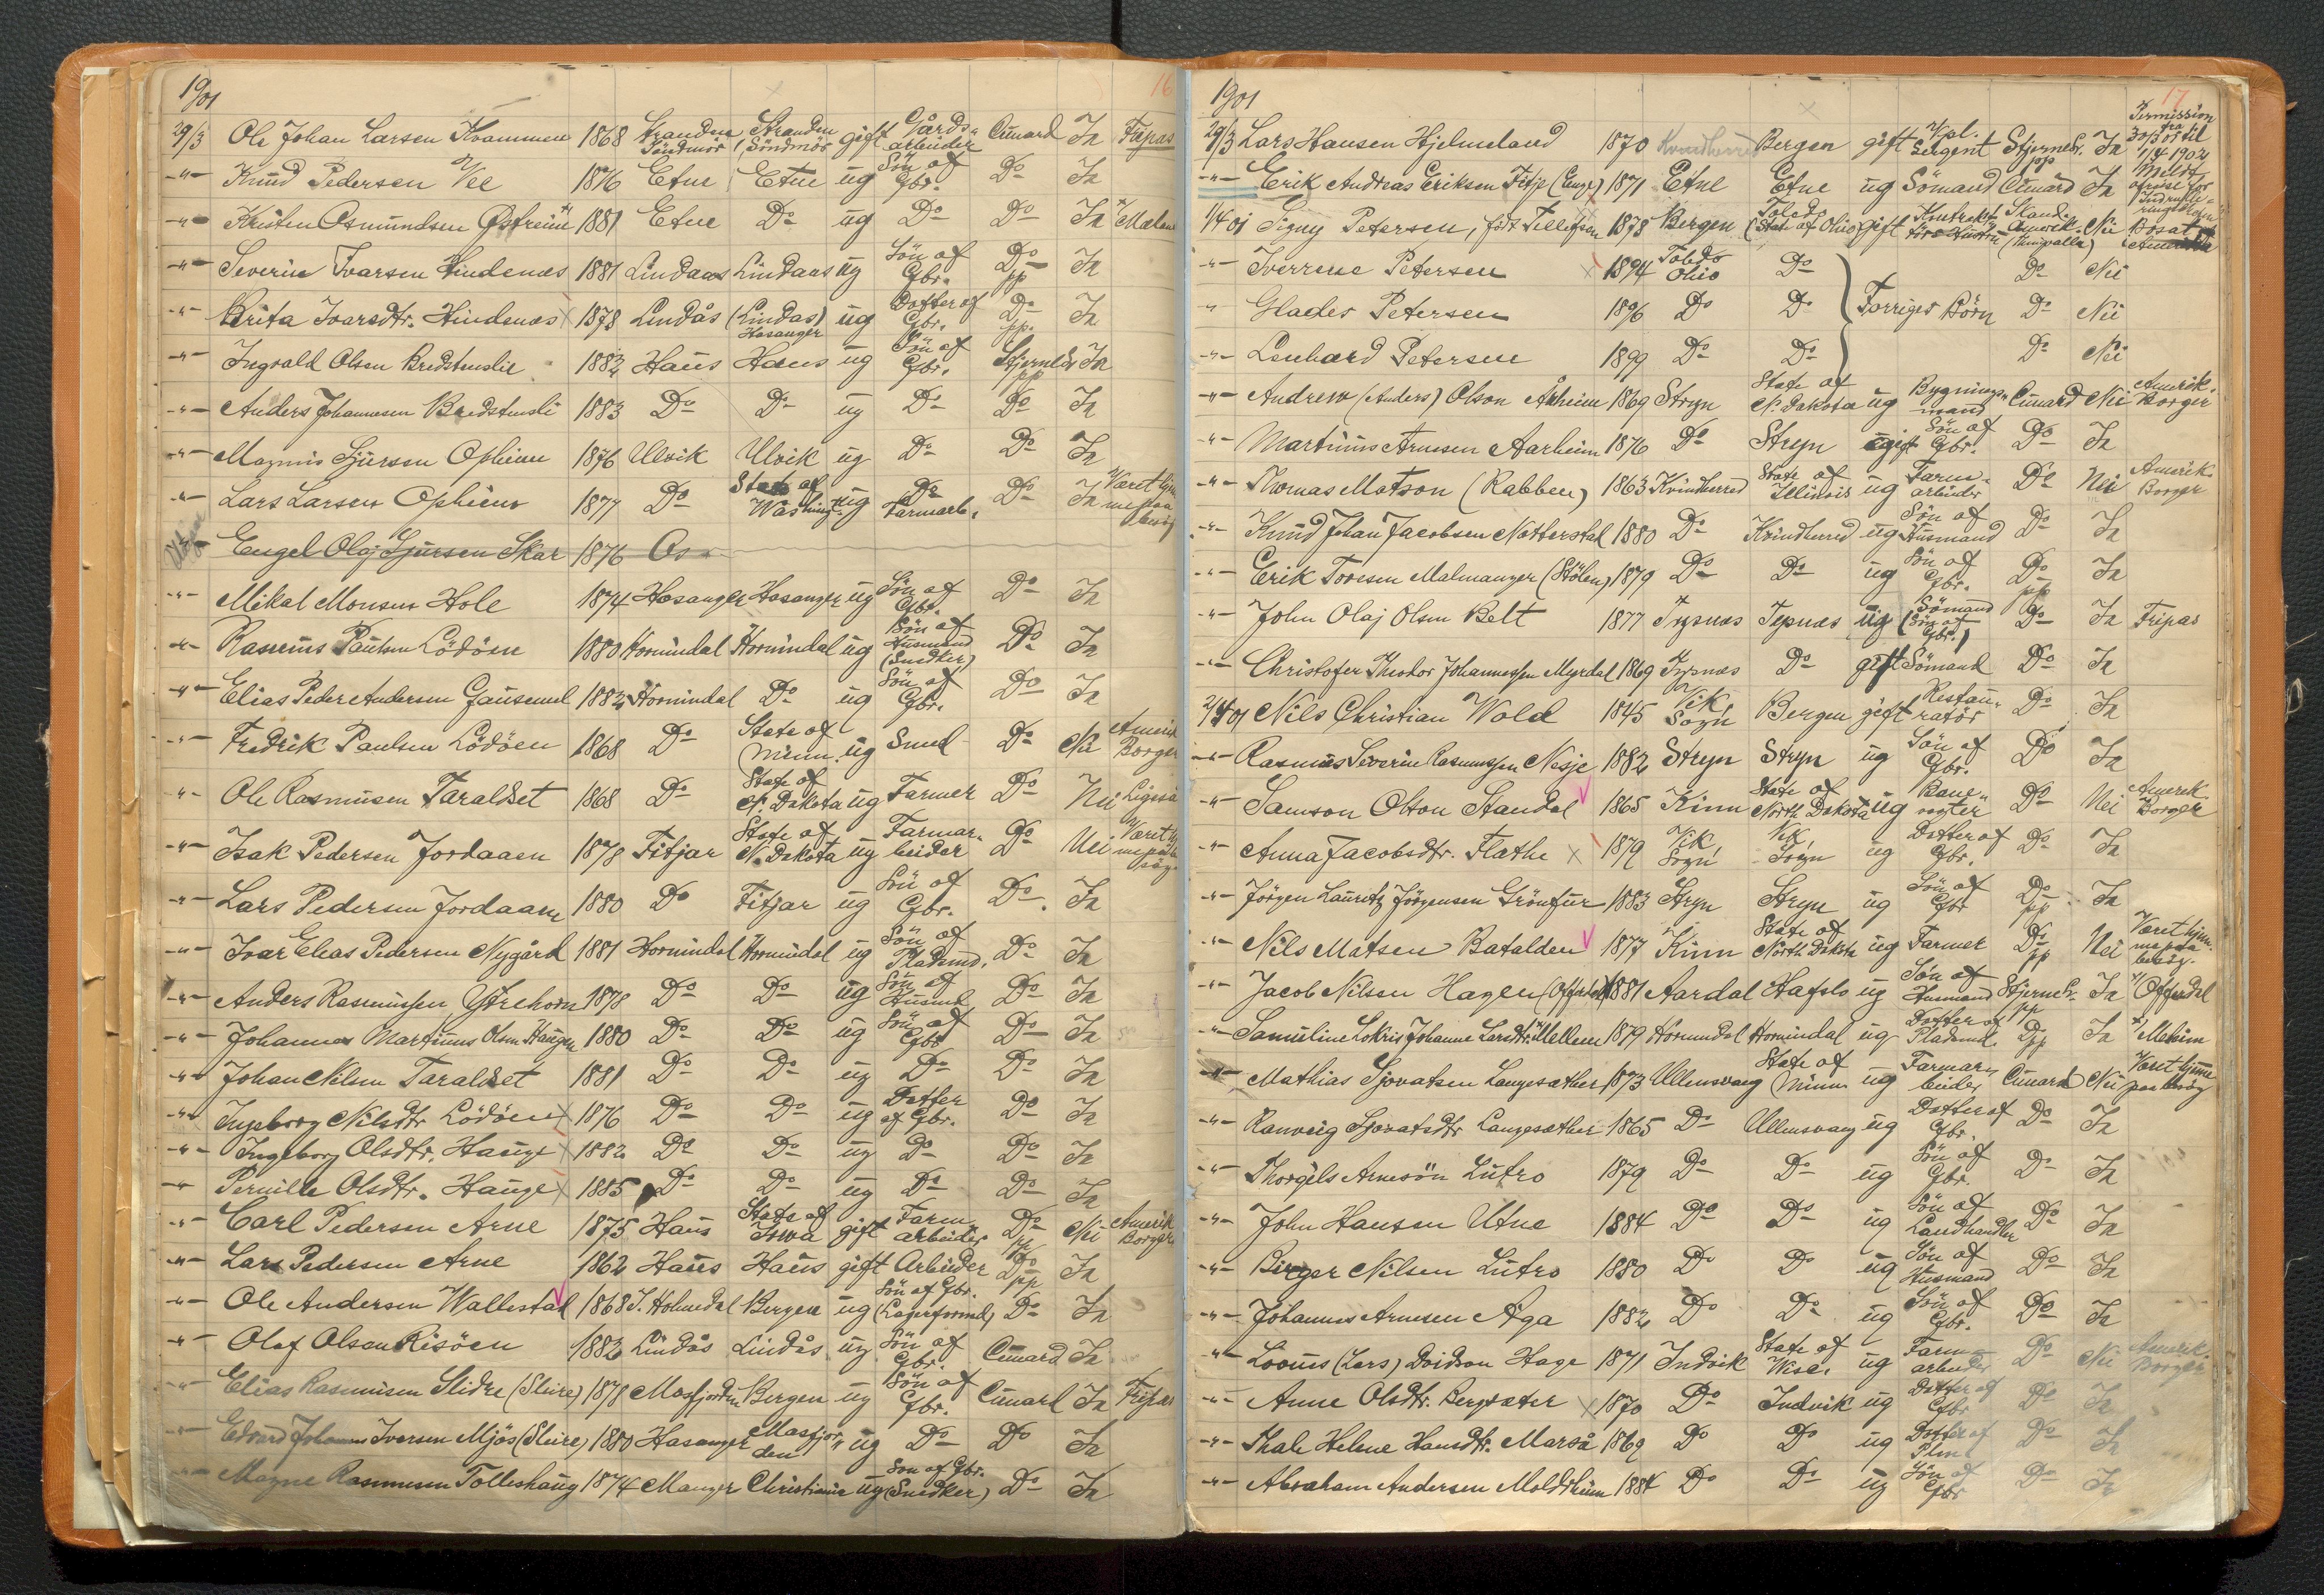 1901
16
29/3 Ole Johan Larsen Kvammen 1868 Stranden Söndmör Stranden Söndmör gift Gårds-arbeider Cunard Ja Fripas
-"- Knud Pedersen Vee 1876 Etne Etne ug Sön af Gbr. Do Ja
-"- Kristen Osmundsen Östreim 1881 Etne Do ug Do Do Ja
-"- Severin Ivarsen Hindenes 1881 Lindaas Lindaas ug Sön af Gbr. Do pp Ja
-"- Brita Ivarsdtr. Hindenæs x 1878 Lindås (Lindås) Hosanger ug Dotter af Gbr. Do pp. Ja
-"- Ingvald Olsen Bredstenslie 1882 Haus Haus ug Sön af Gbr. Stjernelr pp Ja
-"- Anders Johannesen Bredstensli 1883 Do Do ug Do Do Ja
-"- Magnus Sjursen Opheim 1876 Ulvik Ulvik ug Do Do Ja
-"- Lars Larsen Opheim 1877 Do State of Washingt. ug Do Farmarb. Do Ja Været hjemme paa besög
-"- Engel Olaj Sjursen Skar 1876 Os
-"- Mikal Monsen Hole 1874 Hosanger Hosanger ug Sön af Gbr. Do Ja
-"- Rasmus Paulsen Lödöen 1880 Hornindal Hornindal ug Sön af Husmand (Snedker) Do Ja
-"- Elias Peder Andersen Gausemel 1882 Hornindal Do ug Sön af Gbr. Do Ja
-"- Fredrik Paulsen Lödöen 1868 Do State of Minn. ug Smed Do Nei Amerik Borger
-"- Ole Rasmusen Taraldset 1868 Do State of N. Dakota ug Farmer Do Nei Ligesaa
-"- Isak Pedersen Jordaaen 1878 Fitjar State of N. Dakota ug Farmar-beider Do Nei
-"- Lars Pedersen Jordaaen 1880 Do Fitjar ug Sön af Gbr. Do Ja
-"- Ivar Elias Pedersen Nygård 1881 Hornindal Hornindal ug Sön af Pladsmd. Do Ja
-"- Anders Rasmussen Ytrehorn 1878 Do Do ug Sön af Husmd Do Ja
-"- Johannes Martinus Olsen Haugen 1880 Do Do ug Sön af Gbr Do Ja
-"- Johan Nilsen Taraldset 1881 Do Do ug Do Do Ja
-"- Ingeborg Nilsdtr Lödöen x 1876 Do Do ug Dotter af Gbr. Do Ja
-"- Ingeborg Olsdtr. Hauge x 1882 Do Do ug Do Do Ja
-"- Pernille Olsdtr. Hauge x 1885 Do Do ug Do Do Ja
-"- Carl Pedersen Arne 1875 Haus State of Iowa gift Farm arbeider Do pp Nei Amerik Borger
-"- Lars Pedersen Arne 1862 Haus Haus gift Arbeider Do pp Ja
-"- Ole Andersen Wallestad 1868 Bergen ug Sön af Gbr. (Lagerformd) Do Ja
-"- Olaf Olsen Risöen 1882 Lindås Lindås ug Sön af Gbr. Cunard Ja
-"- Elias Rasmusen Slidre (Sleire) 1878 Masfjorden Bergen ug Sön af Gbr. Cunard Ja Fripas
-"- Edvard Johannes Iversen Mjös (Sleire) 1880 Hosanger Masfjor-den ug Do Do Ja
-"- Magne Rasmusen Tolleshaug 1874 Manger Christiania ug Sön af Gbr. (Snedker) Do Ja
1901
17
29/3 Lars Hansen Hjelmeland 1870 Kvindherred Bergen gift Vpl. Sergent Stjernelr. pp Ja Permission fra 30/3 01 til 1/4 1902
-"- Erik Andreas Eriksen Fitje (Enge) 1871 Etne Etne ug Sömand Cunard Ja
1/4 01 Signy Petersen, född Tellefsen 1878 Bergen Toledo (State of Ohio) gift Skand. Amerik. (Thingvalla) Nei Bosat i Amerika
-"- Iverrene Petersen x 1894 Toledo Ohio Do Do Nei
-"- Glades Petersen 1896 Do Do Forriges Börn Do Nei
-"- Lenhard Petersen 1899 Do Do Do Nei
-"- Andrew (Anders) Olson Årheim 1869 Stryn State of N. Dakota ug Bygnings-mand Cunard Nei Amerik. Borger
-"- Martinus Arnesen Aarheim 1876 Do Stryn ugift Sön af Gbr. Do Ja
-"- Thomas Matson (Rabben) 1863 Kvindherred State of Illinois ug Farm-arbeider Do Nei Amerik. Borger
-"- Knud Johan Jacobsen Netterstad 1880 Do Kvindherred ug Sön af Husmand Do Ja
-"- Erik Toresen Malmanger (Stölen) 1879 Do Do ug Sön af Gbr. Do pp Ja
-"- John Olaj Olsen Belt 1877 Tysnæs Tysnæs ug Sömand (Sön af Gbr.) Do Ja Fripas
-"- Christofer Theodor Johannessen Myrdal 1869 Tysnæs Do gift Sömand Do Ja
2/4 01 Nils Christian Wold 1845 Vik Sogn Bergen gift Restau-ratör Do Ja
-"- Rasmus Severin Rasmussen Nesje 1882 Stryn Stryn ug Sön af Gbr. Do Ja
-"- Samson Olson Standal 1865 Kinn State of North Dakota ug Bane-vogter Do Nei Amerik Borger
-"- Anna Jacobsdtr. Flathe x 1879 Vik, Sogn Vik, Sogn ug Dotter af Gbr. Do Ja
-"- Jörgen Lauritz Jörgensen Grönfur 1883 Stryn Stryn ug Sön af Gbr Do pp Ja
-"- Nils Matsen Batalden 1877 Kinn State of North Dakota ug Farmer Do pp Nei Været hjem-me paa besög.
-"- Jacob Nilsen Hagen (Offerdal) 1881 Aardal Hafslo ug Sön af Husmand Stjernelr. pp Ja Offerdal
-"- Samueline Lokris Johanne Larsdtr. Mellem 1879 Hornindal Hornindal ug Dotter af Pladsmd. Do pp Ja
-"- Mathias Sjovatsen Langesæther 1873 Ullensvang State of Minn ug Farmar-beider Cunard Nei Været hjemme paa besög
-"- Ranveig Sjovatsdtr Langesæther 1865 Do Ullensvang ug Dotter af Gbr. Do Ja
-"- Thorgils Arnesön Lutro 1879 Do Do ug Sön af Gbr. Do Ja
-"- John Hansen Utne 1884 Do Do ug Sön af Landhandler Do Ja
-"- Birger Nilsen Lutro 1880 Do Do ug Sön af Husmand Do Ja
-"- Johannes Arnesen Aga 1882 Do Do ug Sön af Gbr. Do Ja
-"- Looms (Lars) Davidson Hage 1871 Indvik State of Wisc. ug Farm-arbeider Do Nei Amerik. Borger
-"- Anne Olsdtr. Bergsæter x 1870 Do Indvik ug Dotter af Gbr Do Ja
-"- Thale Helene Hansdtr. Marså 1869 Do Do ug Dotter af Do Ja
-"- Abraham Andersen Moldrheim 1884 Do Do ug Sön af Gbr Do Ja